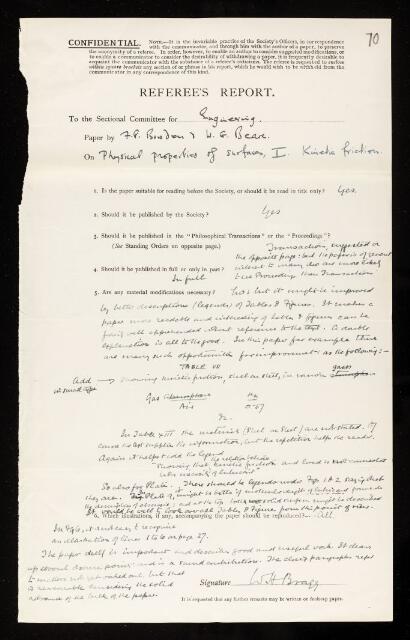 70
CONFIDENTIAL. NOTE.—It is the invariable practice of the Society's Officers, in correspondence
with the communicator, and through him with the author of a paper, to preserve
the anonymity of a referee. In order, however, to enable an author to consider suggested modifications, or
to enable a communicator to consider the desirability of withdrawing a paper, it is frequently desirable to
acquaint the communicator with the substance of a referee's criticisms. The referee is requested to enclose
within square brackets any section of or phrase in his report, which he would wish to be withheld from the
communicator in any correspondence of this kind.
REFEREE'S REPORT.
To the Sectional Committee for Engineering.
Paper by F.P. Bowden & W. G. Beare.
On Physical properties of surfaces, I. Kinetic friction.
1. Is the paper suitable for reading before the Society, or should it be read in title only? Yes.
2. Should it be published by the Society? Yes
3. Should it be published in the "Philosophical Transactions" or the "Proceedings"?
(See Standing Orders on opposite page.) Transactions, suggested on
the opposite page: but the paper is of
interest to many who are more likely
to see Proceedings than Transactions
4. Should it be published in full or only in part?
In full
5. Are any material modifications necessary? No: but it might be improved
by better descriptions (legends) of Tables & Figures. It makes a
paper more readable and interesting if tables & figures can be
fairly well apprehended without reference to the text. A double
explanation is all to the good. In this paper for example there
are many such opportunities for improvement as the following:—
TABLE VII
Add → showing kinetic friction, steel on steel, in various gases
Gas
Air 0.67
In Table VIII the materials (Steel on Steel) are not stated. If
cannot the text supplies the information, but the repetition helps the reader.
Again it helps to add the legend
"Showing that kinetic friction and load is not connected
with viscosity of lubricant"
So also for Plate 1. There should be legends under Figs 1 & 2 saying what
they are.
It would be well to look over all Tables & Figures from this point of view.
6. Which illustrations, if any, accompanying the paper should be reproduced? All
In Fig 6, it is not easy to recognise
an illustration of lines 1 to 6 on page 27.
The paper itself is important and describes good and useful work. It clears
up several obscure points and is a sound contribution. The closing paragraphs refer
to matters not yet worked out, but that
is reasonable considering the solid
advance of the bulk of the paper.
Signature W H Bragg
It is requested that any further remarks may be written on foolscap paper.